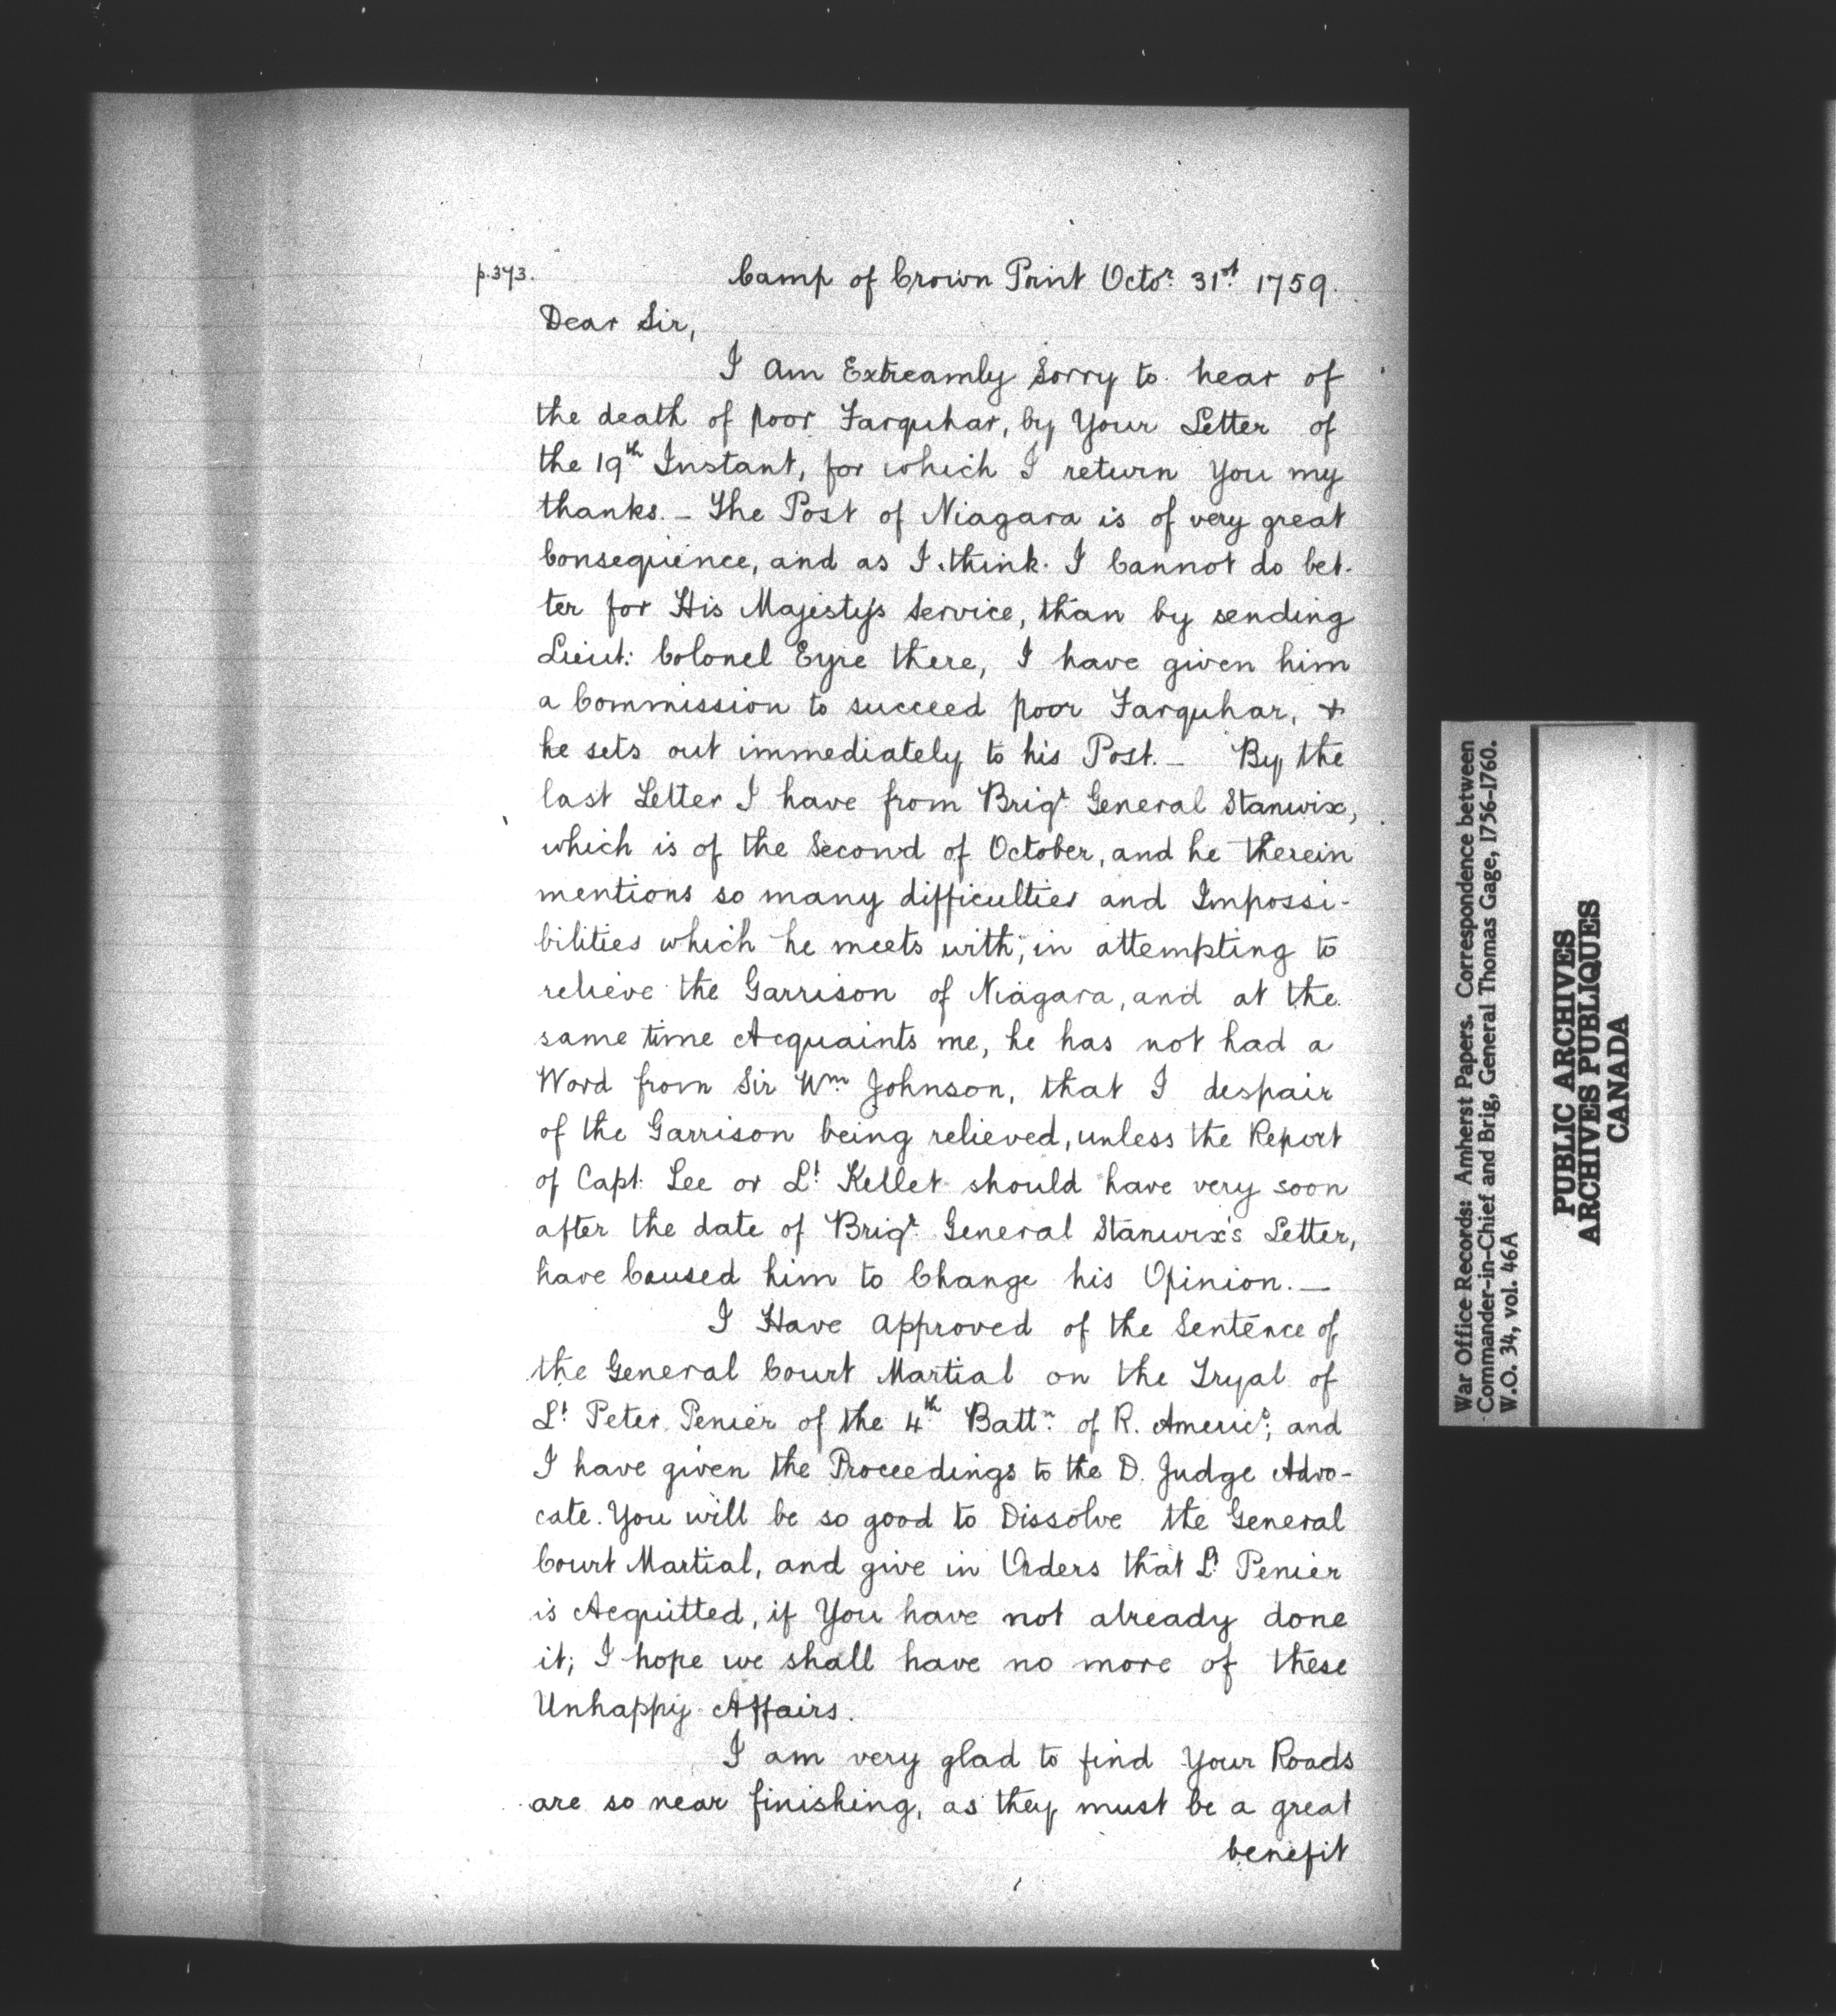 p.373.
Camp of Crown Point Octor. 31st. 1759.
Dear Sir,
I am Extreamly Sorry to hear of
the death of poor Farquhar, by Your Letter of
the 19th Instant, for which I return You my
thanks. — The Post of Niagara is of very great
Consequence, and as I think I Cannot do bet-
ter for His Majestys Service, than by sending
Lieut: Colonel Eyre there, I have given him
a Commission to succeed poor Farquhar, &
he sets out immediately to his Post. — By the
last Letter I have from Brigr. General Stanwix,
which is of the Second of October, and he therein
mentions so many difficulties and Impossi-
bilities which he meets with, in attempting to
relieve the Garrison of Niagara, and at the
same time Acquaints me, he has not had a
Word from Sir Wm Johnson, that I despair
of the Garrison being relieved, unless the Report
of Capt. Lee or Lt. Kellet should have very soon
after the date of Brigr. General Stanwix's Letter,
have Caused him to Change his Opinion. —
I Have approved of the Sentence of
the General Court Martial on the Tryal of
Lt. Peter Penier of the 4th Battn. of R. Americs; and
I have given the Proceedings to the D. Judge Advo-
cate. You will be so good to Dissolve the General
Court Martial, and give in Orders that Lt. Penier
is Acquitted, if You have not already done
it; I hope we shall have no more of these
Unhappy Affairs.
I am very glad to find Your Roads
are so near finishing, as they must be a great
benefit
War Office Records: Amherst Papers. Correspondence between
Commander-in-Chief and Brig, General Thomas Gage, 1756-1760.
W.O. 34, vol. 46A
PUBLIC ARCHIVES
ARCHIVES PUBLIQUES
CANADA